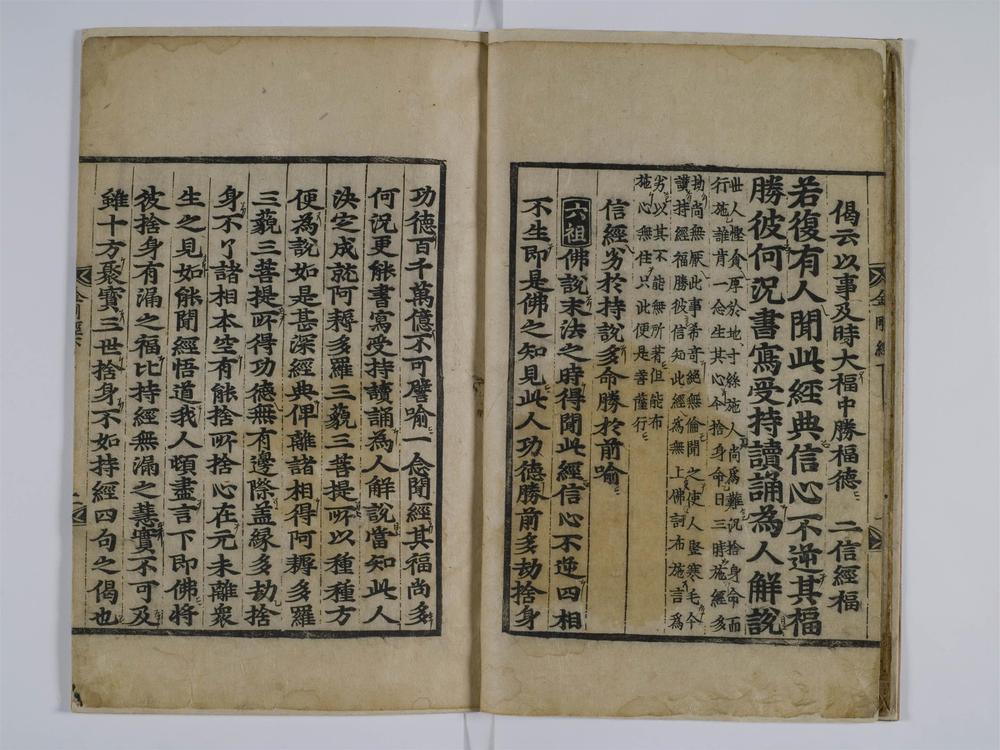 偈云以事及時大福中勝福德　二信經福
若復有人聞此經典信心不逆其福
勝彼何況書寫受持讀誦為人解說
世人慳貪厚於地寸絲施人尚爲難況捨身命而
行施誰肯一念生其心今捨身命日三時施經多
劫尚無厭此事希奇絕無倫聞之使人竪寒毛今
讚持經福勝彼信知此經爲無上佛訶布施言爲
劣以其不能無所著但能布
施心無住只此便是菩薩行
信經劣於持說多命勝於前喻
六祖佛說末法之時得聞此經信心不逆四相
不生即是佛之知見此人功德勝前多劫捨身
功德百千萬億不可譬喻一念聞經其福尚多
何況更能書寫受持讀誦為人解說當知此人
決定成就阿耨多羅三藐三菩提所以種種方
便為說如是甚深經典俾離諸相得阿耨多羅
三藐三菩提所得功德無有邊際盖緣多劫捨
身不了諸相本空有能捨所捨心在元未離衆
生之見如能聞經悟道我人頓盡言下即佛將
彼捨身有漏之福比持經無漏之慧實不可及
雖十方聚寶三世捨身不如持經四句之偈也